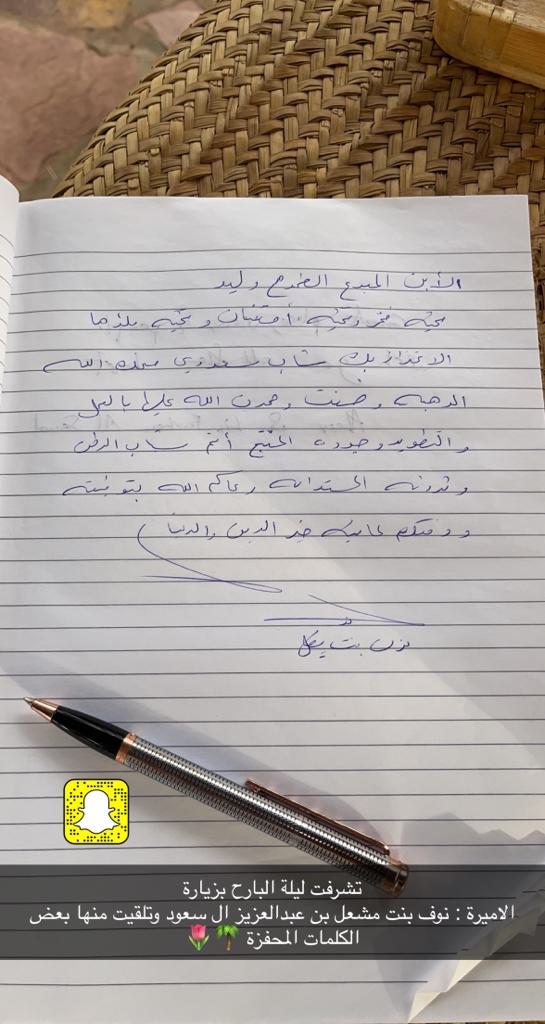 الأبن المبدع الطموح وليد
تحية فخر وتحية أمتنان وتحية ملؤها
الاعتزاز بك شاب سعودي منحه الله
الموهبة وحمدت الله عليها بالعمل
والتطوير وجودة المنتج أنتم شباب الوطن
وثروته المستدامة رعاكم الله بتوفيقه
ووفقكم لما فيه خير الدين والدنيا
نوف بنت
تشرفت ليلة البارح بزيارة
الاميرة : نوف بنت مشعل بن عبدالعزيز ال سعود وتلقيت منها بعض
الكلمات المحفزة 🌴🌷